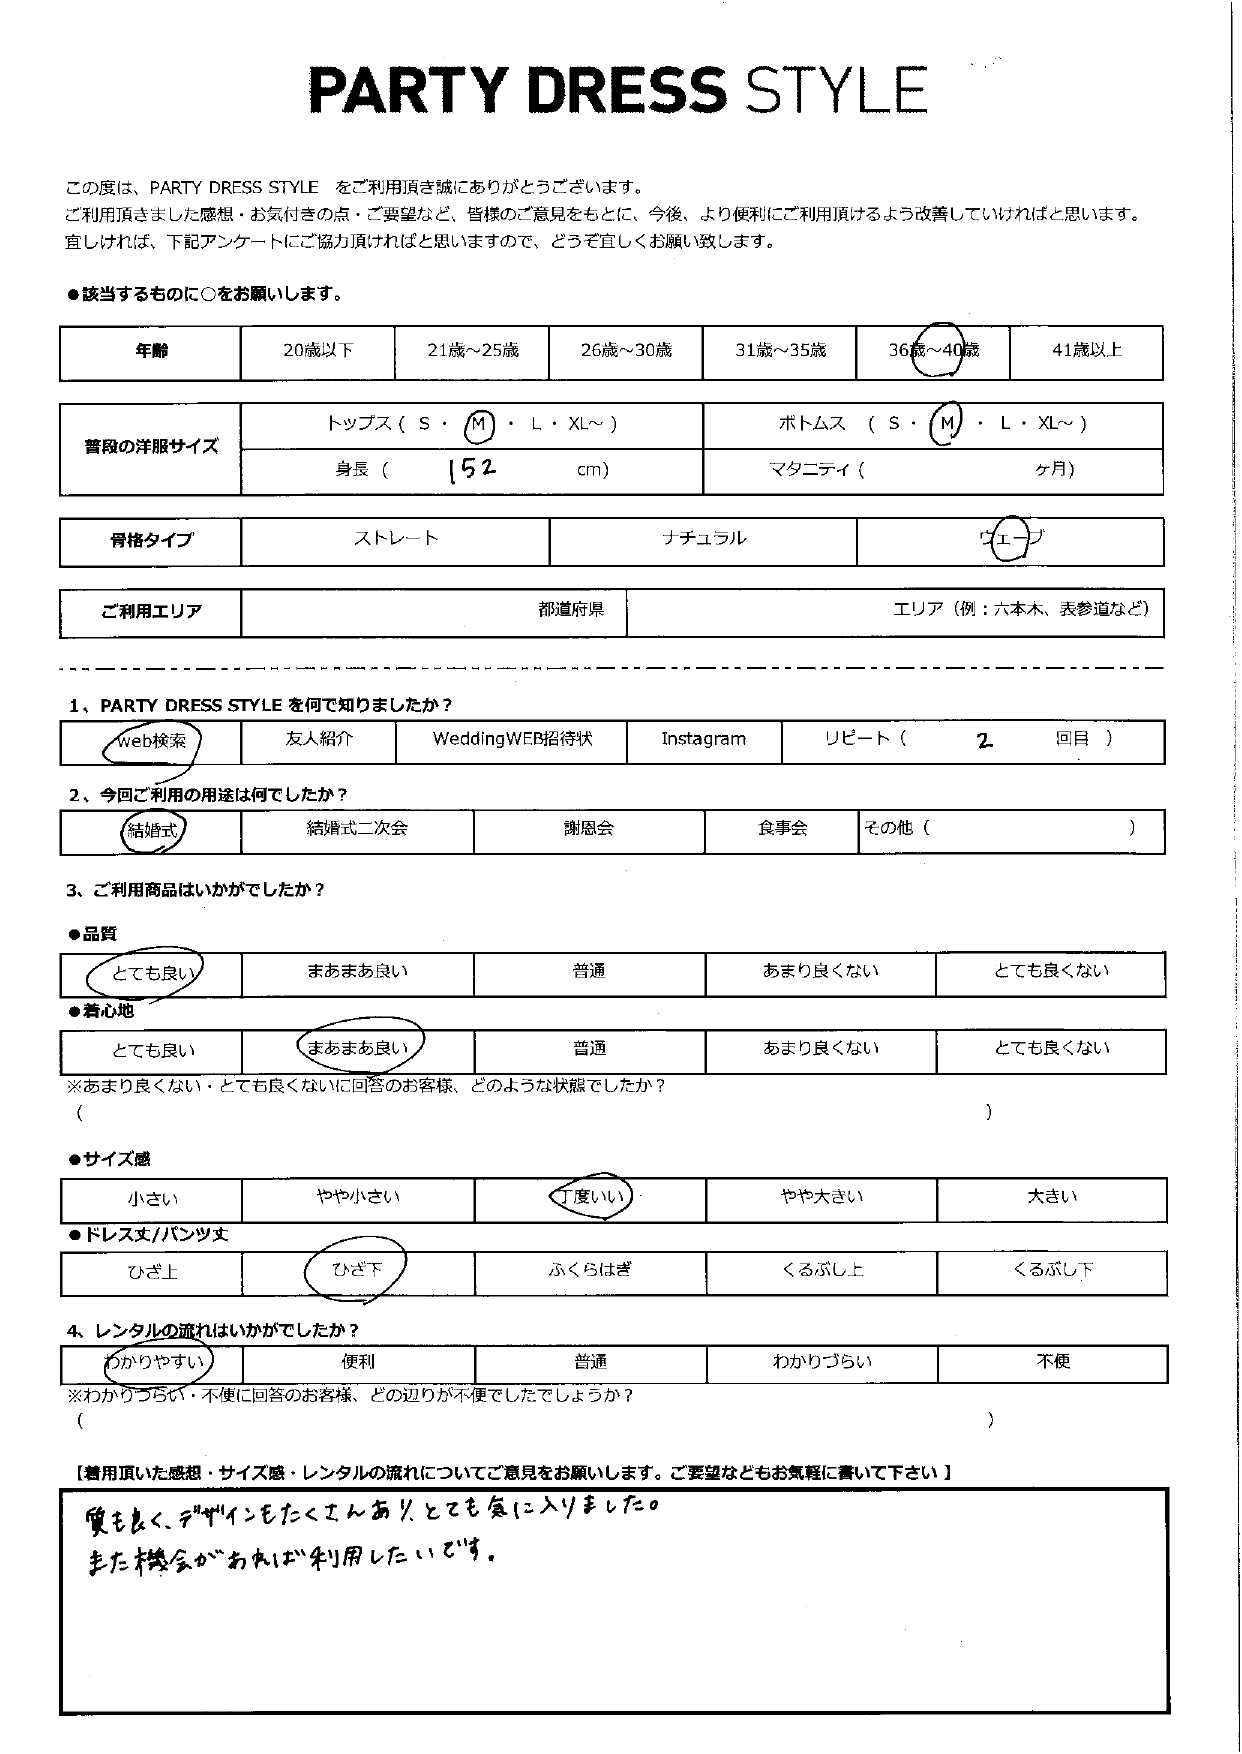 PARTY DRESS STYLE
この度は、PARTY DRESS STYLE　をご利用頂き誠にありがとうございます。
ご利用頂きました感想・お気付きの点・ご要望など、皆様のご意見をもとに、今後、より便利にご利用頂けるよう改善していければと思います。
宜しければ、下記アンケートにご協力頂ければと思いますので、どうぞ宜しくお願い致します。
●該当するものに○をお願いします。
年齢 20歳以下 21歳～25歳 26歳～30歳 31歳～35歳 36歳～40歳 41歳以上
普段の洋服サイズ トップス ( S ・ M ・ L ・ XL～ ) ボトムス ( S ・ M ・ L ・ XL～ )
身長 ( 152 cm) マタニティ ( ケ月)
骨格タイプ ストレート ナチュラル ウェーブ
ご利用エリア 都道府県 エリア（例：六本木、表参道など）
1、PARTY DRESS STYLE を何で知りましたか？
web検索 友人紹介 WeddingWEB招待状 Instagram リピート（ 2 回目 ）
2、今回ご利用の用途は何でしたか？
結婚式 結婚式二次会 謝恩会 食事会 その他（ ）
3、ご利用商品はいかがでしたか？
●品質
とても良い まあまあ良い 普通 あまり良くない とても良くない
●着心地
とても良い まあまあ良い 普通 あまり良くない とても良くない
※あまり良くない・とても良くないに回答のお客様、どのような状態でしたか？
（ ）
●サイズ感
小さい やや小さい 丁度いい やや大きい 大きい
●ドレス丈/パンツ丈
ひざ上 ひざ下 ふくらはぎ くるぶし上 くるぶし下
4、レンタルの流れはいかがでしたか？
わかりやすい 便利 普通 わかりづらい 不便
※わかりづらい・不便に回答のお客様、どの辺りが不便でしたでしょうか？
（ ）
【着用頂いた感想・サイズ感・レンタルの流れについてご意見をお願いします。ご要望などもお気軽に書いて下さい 】
質も良く、デザインもたくさんあり、とても気に入りました。
また機会があれば利用したいです。